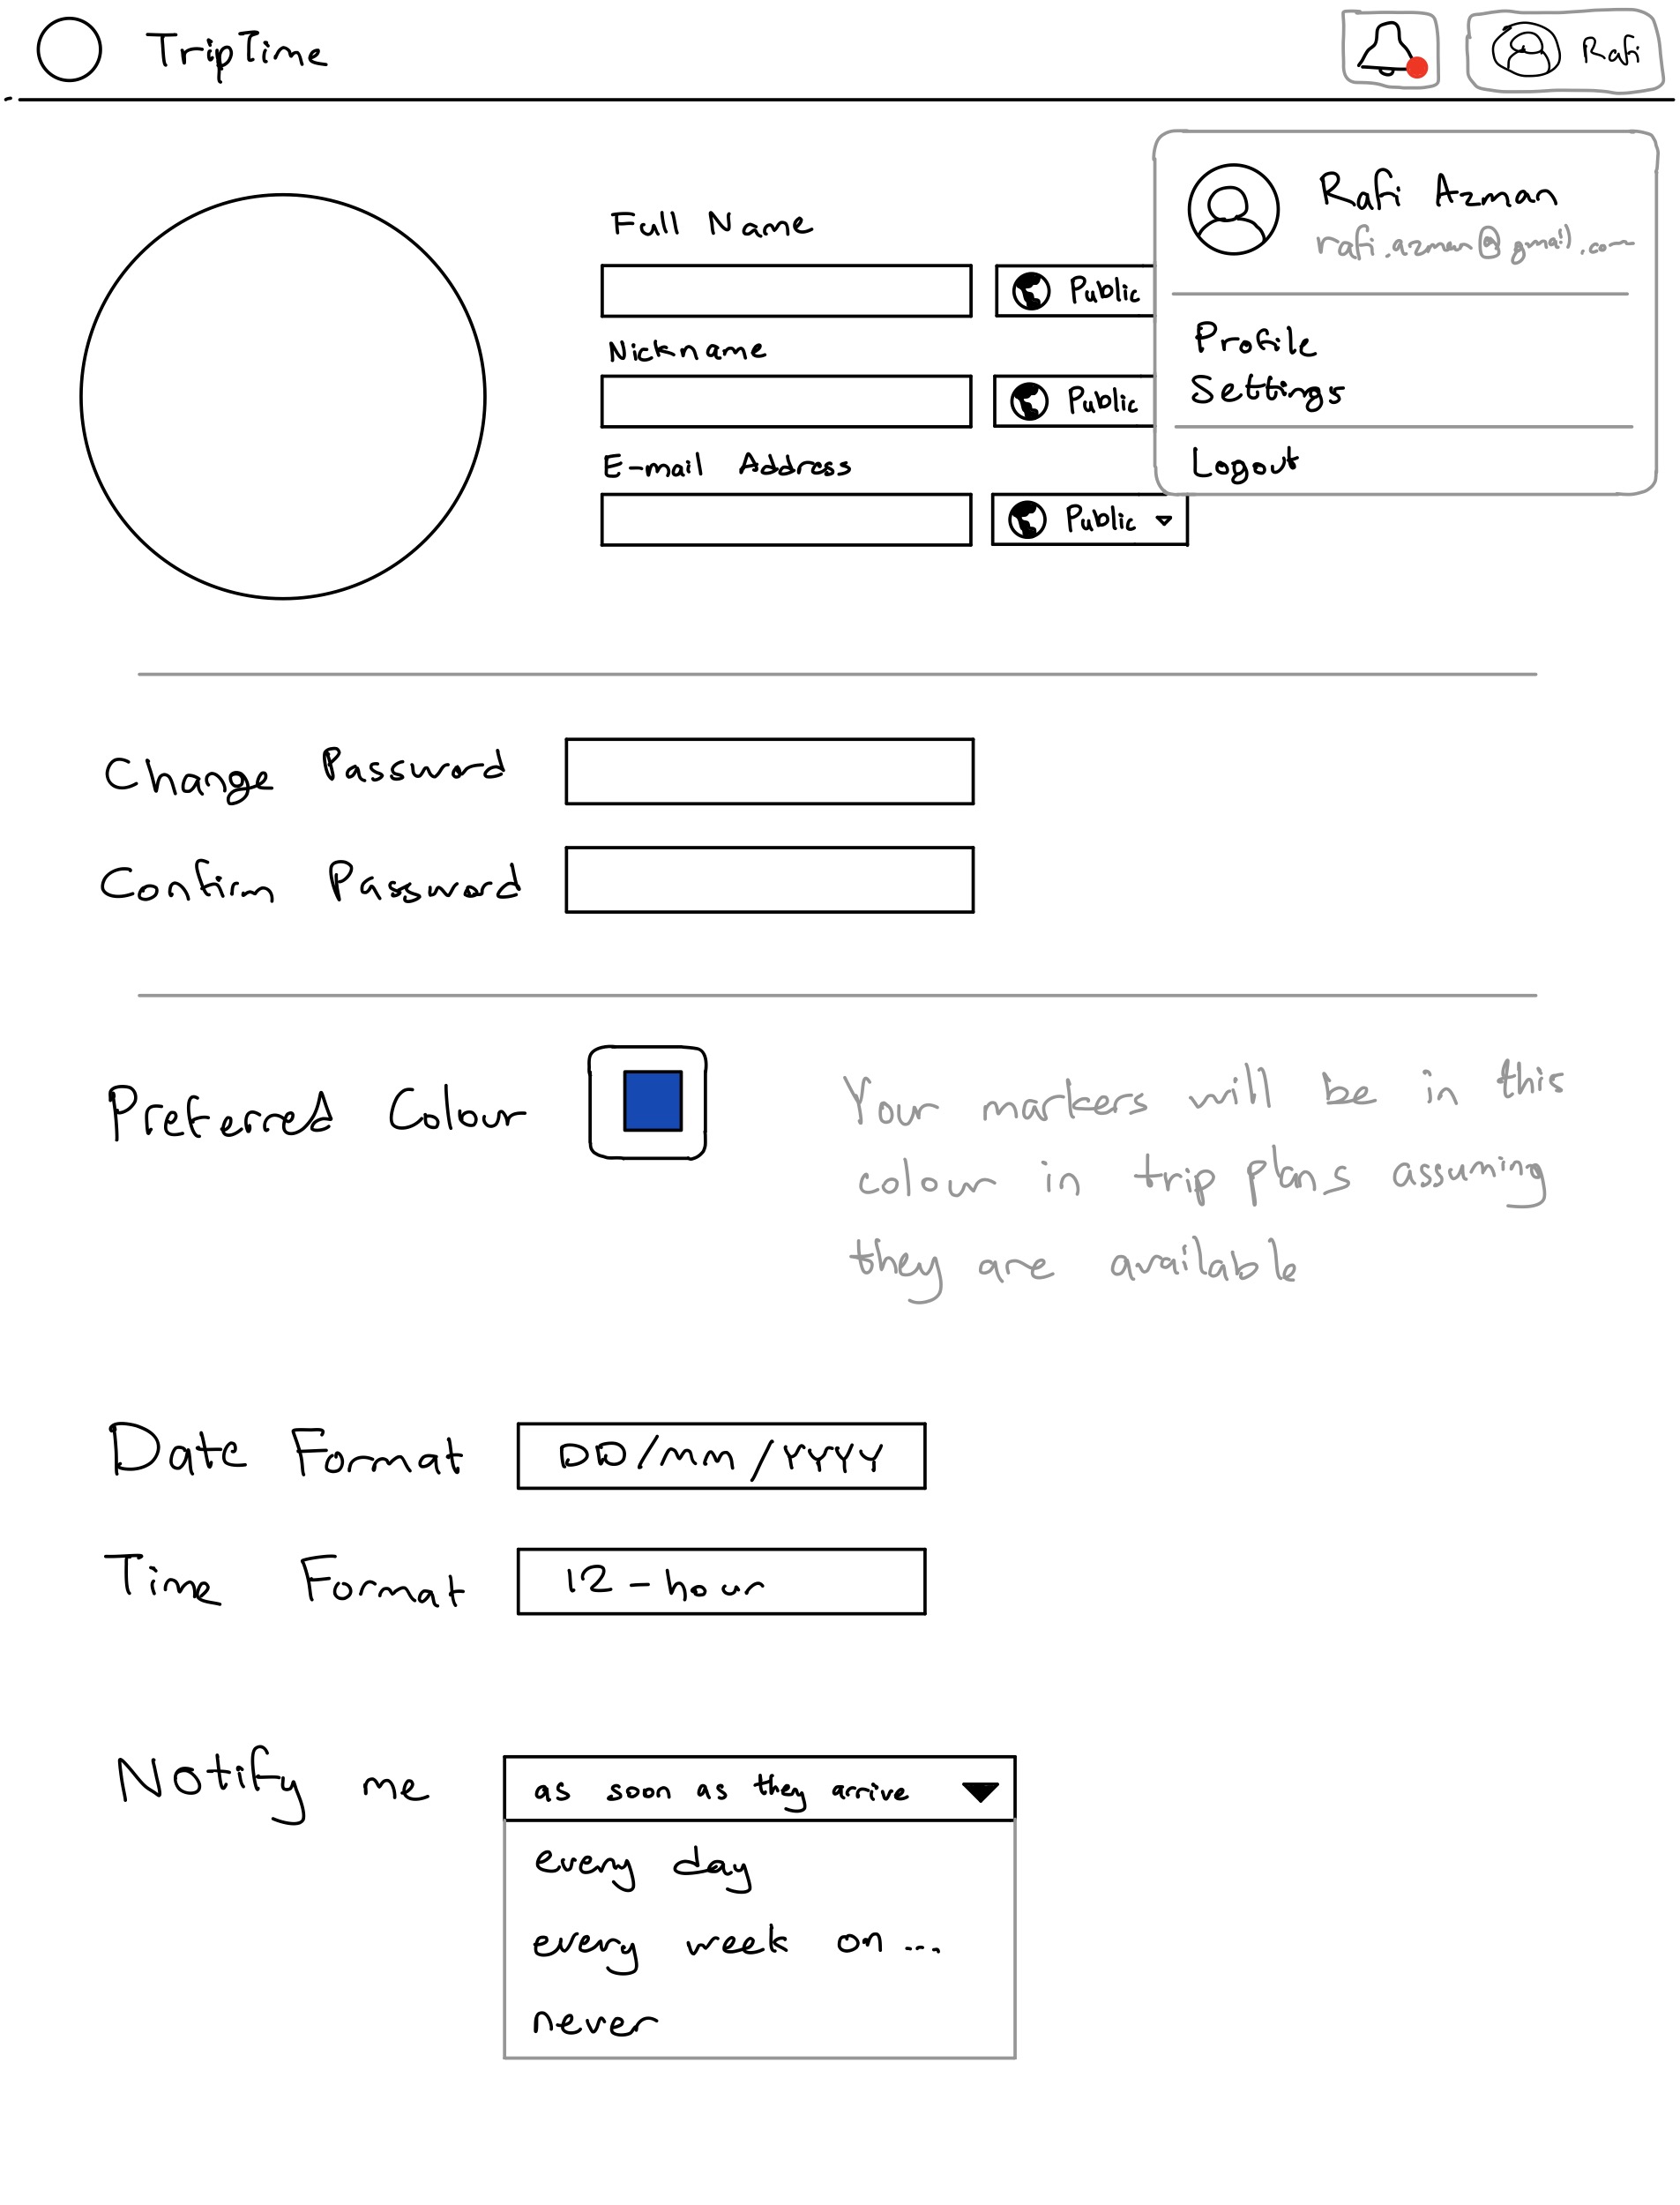 TripTime
Rafi
Rafi Azman
rafi.azman@gmail.com
Full Name
Public
Profile
Nickname
Settings
Public
E-mail Address
Logout
Public
Change Password
Confirm Password
Preferred Colour
Your markers will be in this
colour in trip plans assuming
they are available
Date Format DD/MM/YYYY
Time Format 12-hour
Notify me as soon as they arrive
every day
every week on...
never